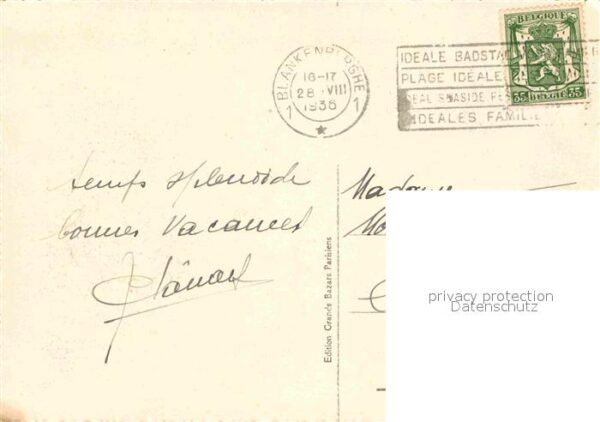 BELGIQUE
35 BELGIË 35
BLANKENBERGHE
16-17
28 VIII
1936
1 1
IDEALE BADST
PLAGE IDEALE
IDEAL SEASIDE RE
IDEALES FAMILI
temps splendide
bonnes vacances
Madame
Edition Grands Bazars Parisiens
privacy protection
Datenschutz